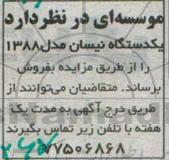 موسسه‌ای در نظر دارد
یکدستگاه نیسان مدل ۱۳۸۸
را از طریق مزایده بفروش
برساند. متقاضیان می‌توانند از
طریق درج آگهی به مدت یک
هفته با تلفن زیر تماس بگیرند
۷۷۵۰۶۸۶۸